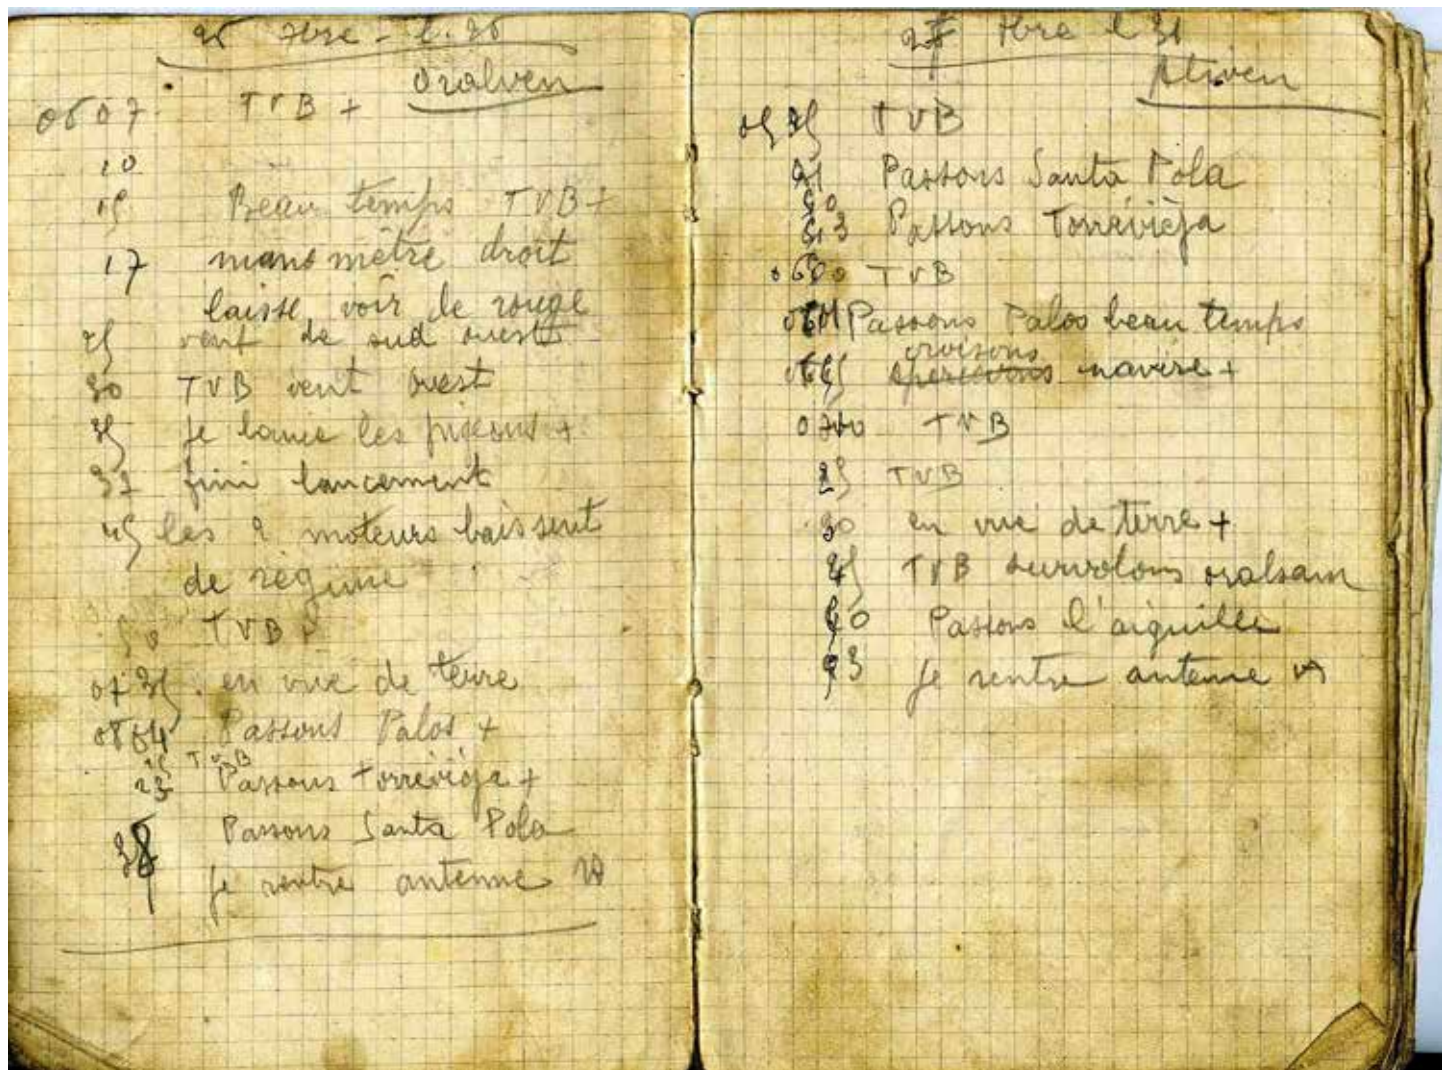 26 bre - l. 26
oralven
0607 TVB +
10
15 Beau temps TVB +
17 manomètre droit
laisse voir le rouge
25 vent de sud ouest
30 TVB vent ouest
35 je lance les pigeons +
37 fini lancement
45 les 2 moteurs baissent
de régime
50 TVB
0735 en vue de terre
0804 Passons Palos +
15 TVB
23 Passons Torreviéja +
38 Passons Santa Pola
je rentre antenne
27 bre l 31
0535 TVB
Passons Santa Pola
Passons Torreviéja
0600 TVB
Passons Palos beau temps
croisons
apercevons navire +
0700 TVB
25 TVB
30 en vue de terre +
45 TVB survolons oralsam
Passons l'aiguille
je rentre antenne